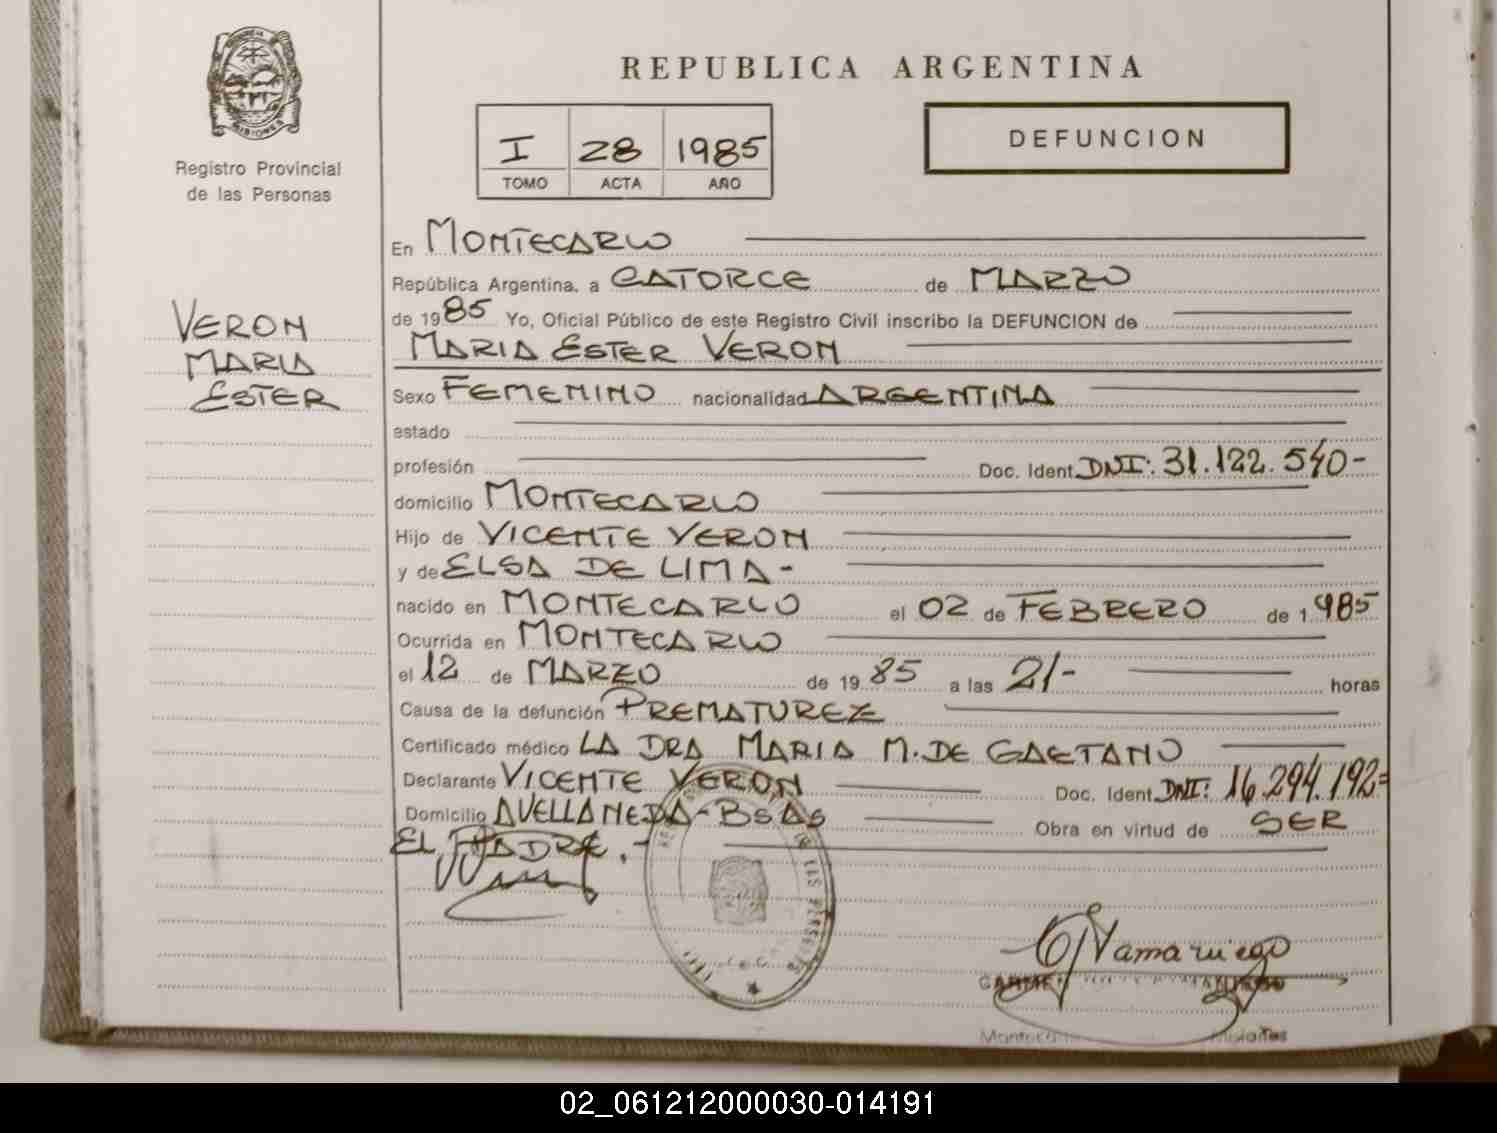 REPUBLICA ARGENTINA
MISIONES
Registro Provincial
de las Personas
I 28 1985
TOMO ACTA AÑO
DEFUNCION
VERON
MARIA
ESTER
En MONTECARLO
República Argentina, a CATORCE de MARZO
de 1985 Yo, Oficial Público de este Registro Civil inscribo la DEFUNCION de
MARIA ESTER VERON
Sexo FEMENINO nacionalidad ARGENTINA
estado
profesión Doc. Ident. DNI: 31.122.540-
domicilio MONTECARLO
Hijo de VICENTE VERON
y de ELSA DE LIMA-
nacido en MONTECARLO el 02 de FEBRERO de 1985
Ocurrida en MONTECARLO
el 12 de MARZO de 1985 a las 21/- horas
Causa de la defunción PREMATUREZ
Certificado médico LA DRA MARIA M. DE GAETANO
Declarante VICENTE VERON Doc. Ident. DNI: 16.294.192=
Domicilio AVELLANEDA-BSAS Obra en virtud de SER
EL PADRE.-
DE LAS PERSONAS
CARMEN
Misiones
02_061212000030-014191